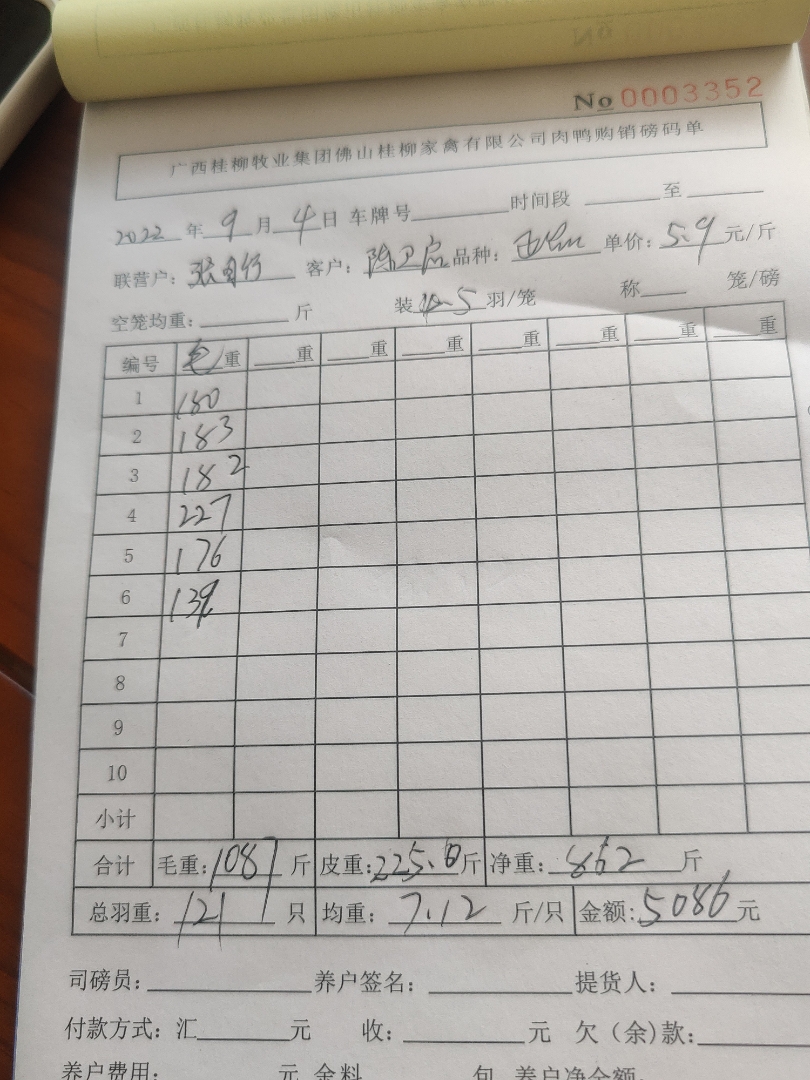 No 0003352
广西桂柳牧业集团佛山桂柳家禽有限公司肉鸭购销磅码单
2022 年 9 月 4 日 车牌号 时间段 至
联营户: 客户: 陈卫启 品种: 单价: 5.9 元/斤
空笼均重: 斤 装 5 羽/笼 称 笼/磅
编号 毛重 重 重 重 重 重 重 重
1 180
2 183
3 182
4 227
5 176
6 139
7
8
9
10
小计
合计 毛重: 1087 斤 皮重: 225.0 斤 净重: 862 斤
总羽重: 121 只 均重: 7.12 斤/只 金额: 5086 元
司磅员: 养户签名: 提货人:
付款方式: 汇 元 收: 元 欠(余)款:
养户费用: 元 余料 包 养户净余额: